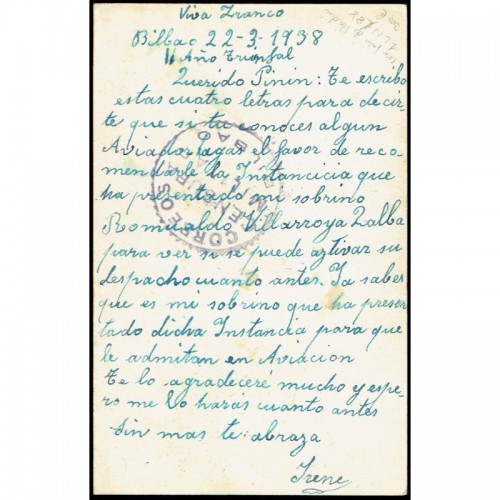 Viva Franco
Bilbao 22-3-1938
II Año Triunfal
Querido Pinin: Te escribo
estas cuatro letras para decir-
te que si tu conoces algun
Aviador agas el favor de reco-
mendarle la Instancicia que
ha presentado mi sobrino
Romualdo Villarroya Zalba
para ver si se puede aztivar su
despacho cuanto antes. Ya sabes
que es mi sobrino que ha presen-
tado dicha Instancia para que
le admitan en Aviacion
Te lo agradeceré mucho y espe-
ro me lo harás cuanto antes
Sin mas te abraza
Irene
CORREOS
CENSURA
BILBAO